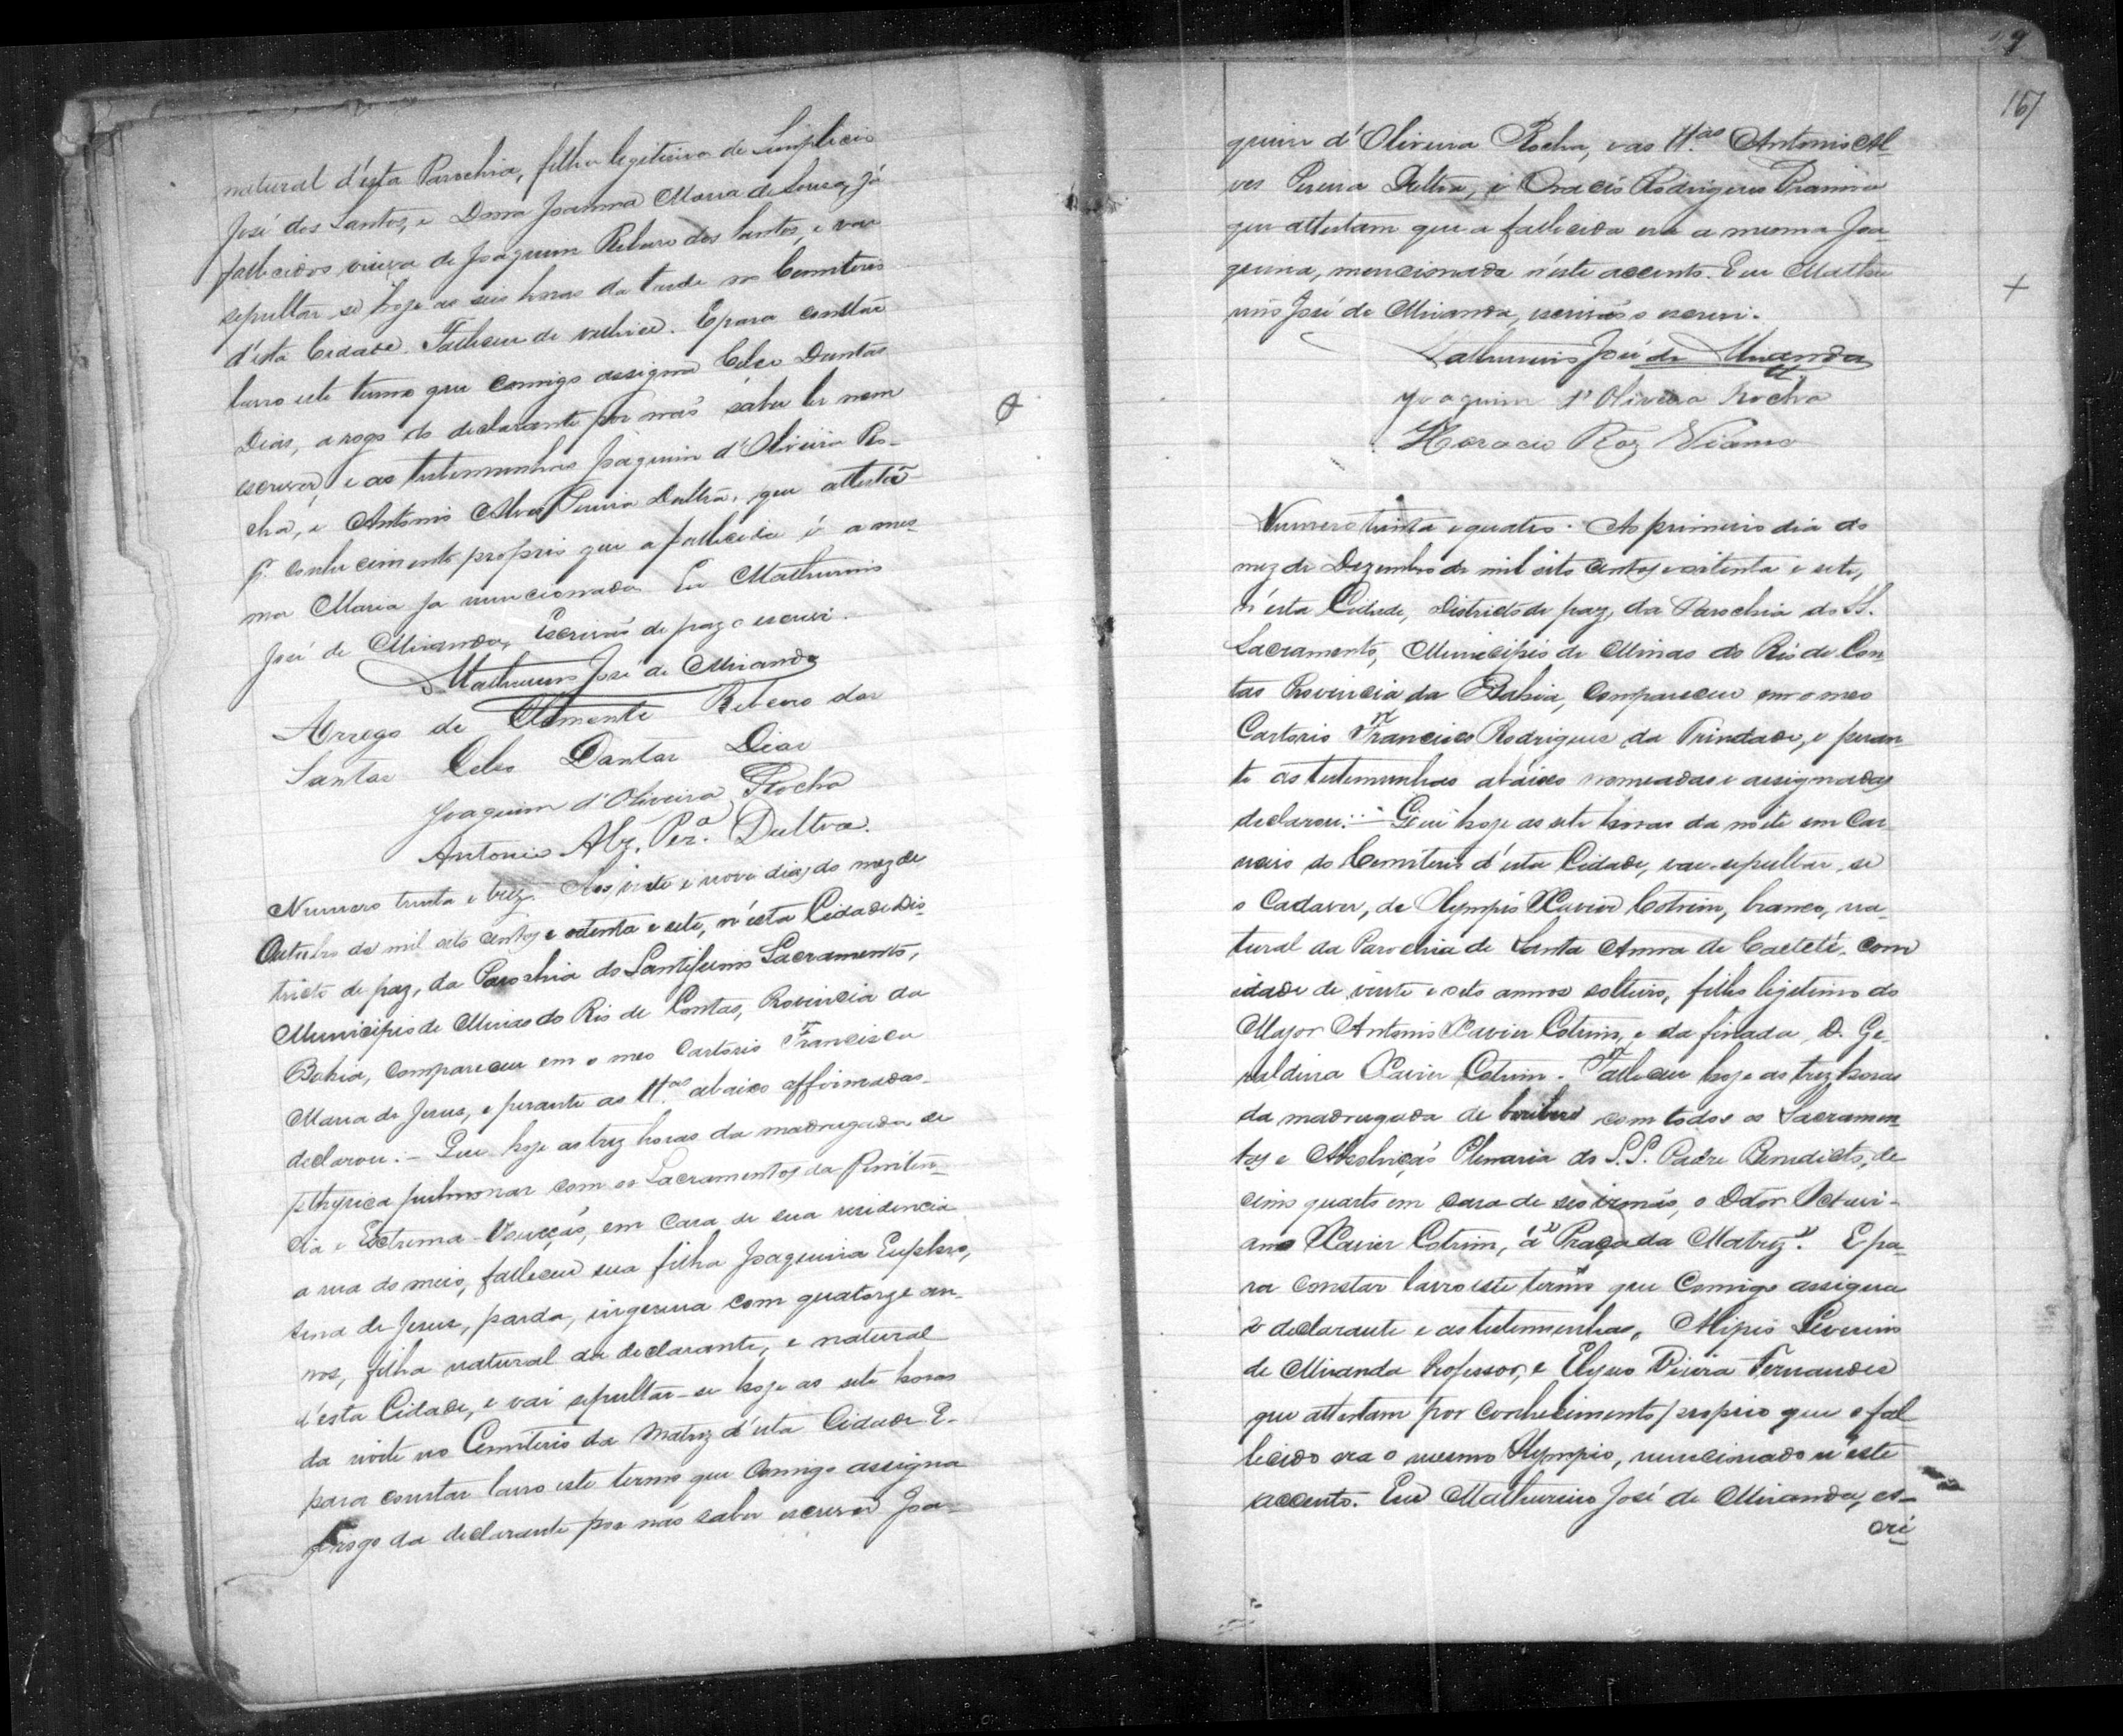 natural d'esta Parochia, filha legitima de Simplicio
José dos Santos, e Dona Joanna Maria de Sousa, já
fallecidos viuva de Joaquim Ribeiro dos Santos, e vae
sepultar-se hoje as seis horas da tarde no Cemiterio
d'esta Cidade. Falleceu de velhice. E para constar
lavro este termo que comigo assigna Celso Dantas
Dias, a rogo do declarante por não saber ler nem
escrever, e as testemunhas Joaquim d'Oliveira Ro-
cha, e Antonio Alves Pereira Dultra, que attestão
p. conhecimento proprio que a fallecida é a mes-
ma Maria ja mencionada. Eu Mathurino
José de Miranda, Escrivão de paz o escrevi.
Mathurino José de Miranda
Arrogo de Clemente Ribeiro dos
Santos Celso Dantas Dias
Joaquim d'Oliveira Rocha
Antonio Alz. Per.ª Dultra.
Numero trinta e trez. Aos vinte e nove dias do mez de
Outubro de mil oito centos e oitenta e sete, n'esta Cidade Dis-
tricto de paz, da Parochia do Santissimo Sacramento,
Municipio de Minas do Rio de Contas, Provincia da
Bahia, compareceu em o meo Cartorio Francisca
Maria de Jesus, e perante as tt.as abaixo affirmadas
declarou:- Que hoje as trez horas da madrugada de
pthysica pulmonar com os Sacramentos da Peniten-
cia e Extrema-Uncção, em casa de sua residencia
a rua do meio, falleceu sua filha Joaquina Euphro-
sina de Jesus, parda, ingenua com quatorze an-
nos, filha natural da declarante, e natural
d'esta Cidade, e vai sepultar-se hoje as sete horas
da noite no Cemiterio da Matriz d'esta Cidade E-
para constar lavro este termo que comigo assigna
arrogo da declarante por não saber escrever Joa-
9
167
quim d'Oliveira Rocha, e as tt.as Antonio Al-
ves Pereira Dultra, e Oracio Rodrigues Vianna
que attestam que a fallecida era a mesma Joa-
quina, mencionada n'este accento. Eu Mathu-
rino José de Miranda, escrivão o escrevi.
Mathurino José de Miranda
Joaquim d'Oliveira Rocha
Horacio Roz Vianna
Numero trinta e quatro. Ao primeiro dia do
mez de Dezembro de mil oito centos e oitenta e sete,
n'esta Cidade, Districto de paz, da Parochia do SS.
Sacramento, Municipio de Minas do Rio de Con-
tas Provincia da Bahia, compareceu em o meo
Cartorio Francisco Rodrigues da Trindade, e peran-
te as testemunhas abaixo nomeadas e assignadas
declarou:- Que hoje as sete horas da noite em Car-
neiro do Cemiterio d'esta Cidade, vae sepultar-se
o Cadaver, de Olympio Xavier Cotrim, branco, na-
tural da Parochia de Santa Anna de Caeteté, com
idade de vinte e oito annos solteiro, filho legitimo do
Major Antonio Xavier Cotrim, e da finada D. Ge-
raldina Xavier Cotrim. Falleceu hoje as trez horas
da madrugada de beriberi com todos os Sacramen-
tos e Absolvição Plenaria do S.S. Padre Benedicto, de-
cimo quarto em casa de seo irmão, o Dôtor Octavi-
ano Xavier Cotrim, á "Praça da Matriz". E pa-
ra constar lavro este termo que comigo assigna
o declarante e as testemunhas, Alipio Severino
de Miranda Professor, e Elyseo Vieira Fernandes
que attestam por conhecimento proprio que o fal-
lecido era o mesmo Olympio, mencionado n'este
accento. Eu Mathurino José de Miranda, es-
cri-